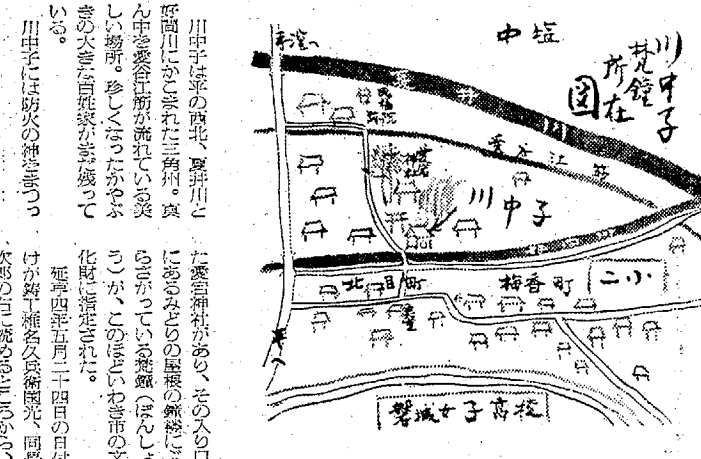 川中子
梵鐘
所在
図
中塩
愛谷江筋
川中子
北目町
梅香町
二小
磐城女子高校
川中子は平の西北、夏井川と
好間川にかこまれた三角州。真
ん中を愛谷江筋が流れている美
しい場所。珍しくなったかやぶ
きの大きな百姓家がまだ残って
いる。
川中子には防火の神をまつっ
た愛宕神社があり、その入り口
にあるみどりの屋根の鐘楼にぶ
らさがっている梵鐘（ぼんしょ
う）が、このほどいわき市の文
化財に指定された。
延享四年五月二十四日の日付
けが鋳工椎名久兵衛国光、同
次郎の右に読めるところから、